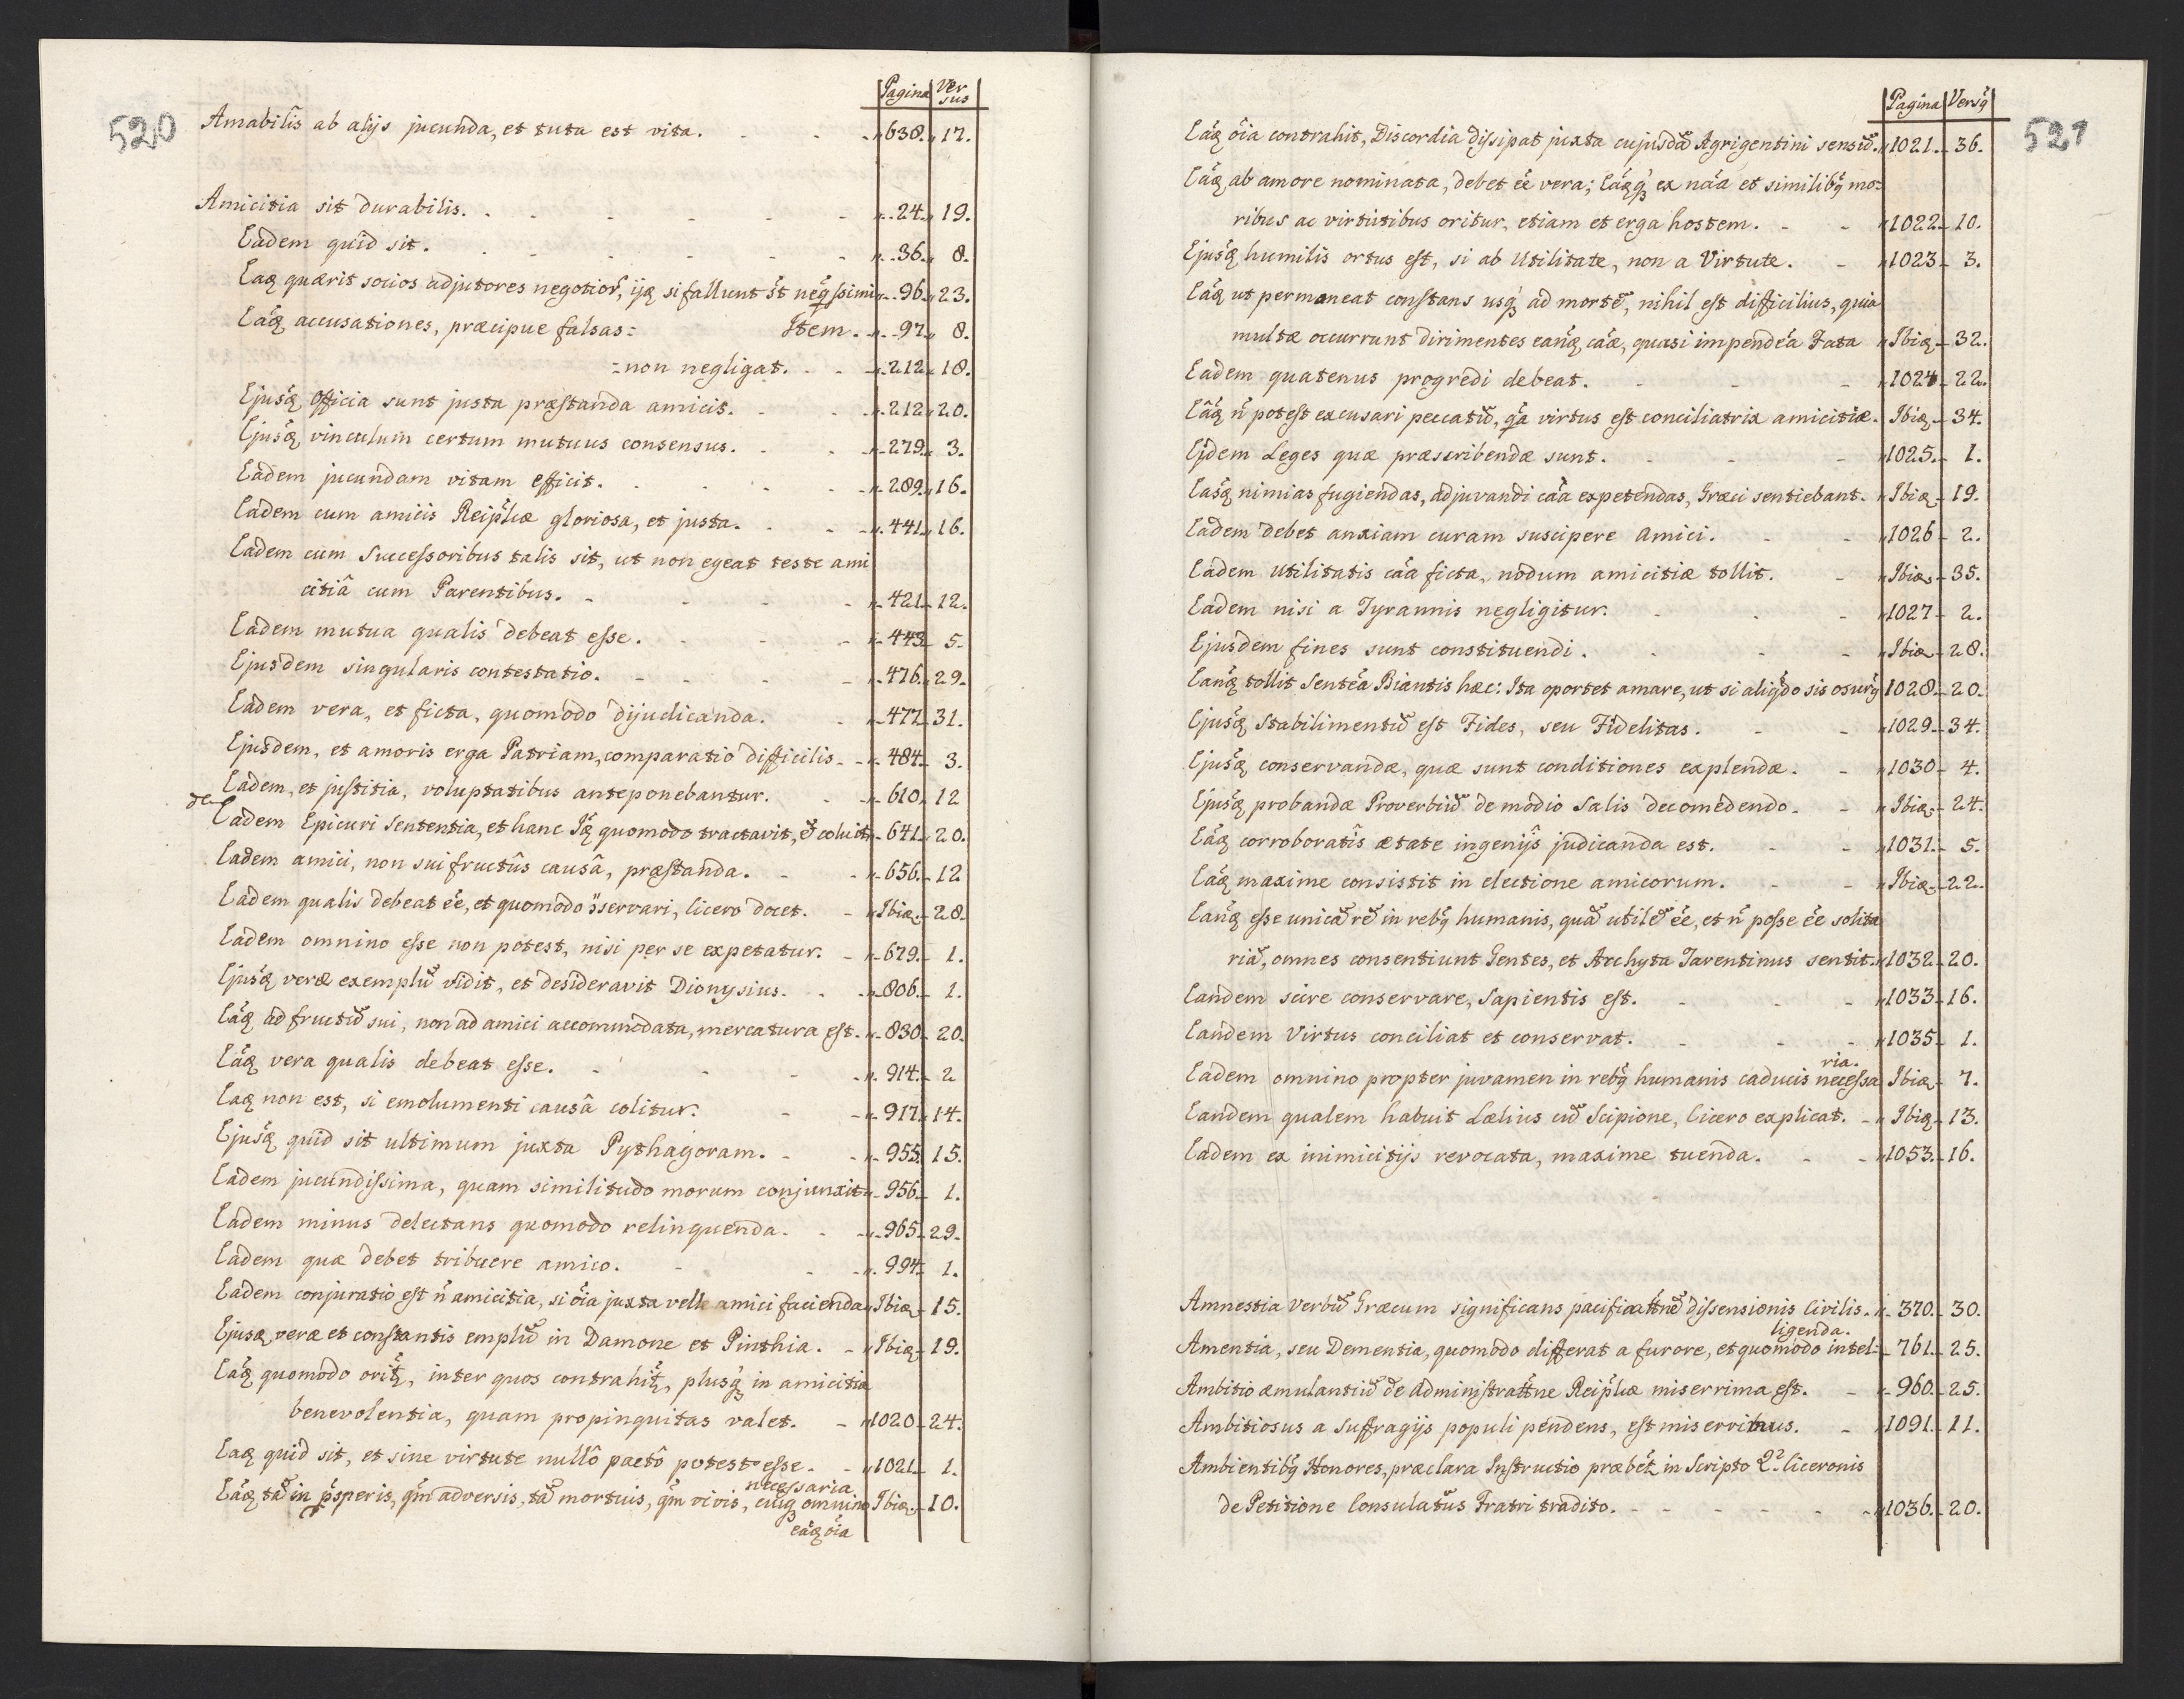 520
Pagina Versus
Amabilis ab alijs jucunda, et tuta est vita. 638. 17.
Amicitia sit durabilis. 24. 19.
Eadem quid sit. 36. 8.
Eaq quærit socios adjutores negotior, ijq si fallunt st neqssimi 96. 23.
Eáq accusationes, præcipue falsas= Item. 97. 8.
=non negligat. 212. 18.
Ejusq officia sunt justa præstanda amicis. 212. 20.
Ejusq vinculum certum mutuus consensus. 279. 3.
Eadem jucundam vitam efficit. 289. 16.
Eadem cum amicis Reiplicæ gloriosa, et justa. 441. 16.
Eadem cum Successoribus talis sit, ut non egeat teste ami
citiâ cum Parentibus. 421. 12.
Eadem mutua qualis debeat esse. 443. 5.
Ejusdem singularis contestatio. 476. 29.
Eadem vera, et ficta, quomodo dijudicanda. 477. 31.
Ejusdem, et amoris erga Patriam, comparatio difficilis 484. 3.
Eadem, et justitia, voluptatibus anteponebantur. 610. 12
de Eadem Epicuri Sententia, et hanc Iq quomodo tractavit, & coluit 641. 20.
Eadem amici, non sui fructûs causâ, præstanda. 656. 12
Eadem qualis debeat eé, et quomodo servari, Cicero docet. Ibiq. 28.
Eadem omnino esse non potest, nisi per se expetatur. 679. 1.
Ejusq veræ exemplu vidit, et desideravit Dionysius. 806. 1.
Eáq ad fructu sui, non ad amici accommodata, mercatura est. 830. 20.
Eáq vera qualis debeat esse. 914. 2
Eaq non est, si emolumenti causâ colitur. 917. 14.
Ejusq quid sit ultimum juxta Pythagoram. 955. 15.
Eadem jucundissima, quam similitudo morum conjunxit 956. 1.
Eadem minus delectans quomodo relinquenda. 965. 29.
Eadem quæ debet tribuere amico. 994. 1.
Eadem conjuratio est n amicitia, si oia juxta velle amici facienda Ibiq. 15.
Ejusq veræ et constantis emplu in Damone et Pinthia. Ibiq. 19.
Eáq quomodo oritz, inter quos contrahitz, plusq in amicitia
benevolentia, quam propinquitas valet. 1020. 24.
Eaq quid sit, et sine virtute nullô pactô potest esse. 1021. 1.
necessaria
Eáq ta in psperis, qm adversis, ta mortuis, qm vivis, cuiq omnino Ibiq. 10.
eáq oia
521
Pagina Versq
Eáq oia contrahit, Discordia dissipat juxta cujusda Agrigentini sensu. 1021. 36.
Eáq, ab amore nominata, debet eé vera; Eáqq ex naa et similibq mo=
ribus ac virtutibus oritur, etiam et erga hostem. 1022. 10.
Ejusq humilis ortus est, si ab Utilitate, non a Virtute. 1023. 3.
Eáq ut permaneat constans usq ad morte, nihil est difficilius, quia
multæ occurrunt dirimentes eanq caæ, quasi impendea Fata Ibiq. 32.
Eadem quatenus progredi debeat. 1024. 22.
Eâq n potest excusari peccatu, qa virtus est conciliatrix amicitiæ. Ibiq. 34.
Ejdem Leges quæ præscribendæ sunt. 1025. 1.
Easq nimias fugiendas, adjuvandi caa expetendas, Græci sentiebant. Ibiq. 19.
Eadem debet anxiam curam suscipere Amici. 1026. 2.
Eadem Utilitatis caa ficta, nodum amicitiæ tollit. Ibiq. 35.
Eadem nisi a Tyrannis negligitur. 1027. 2.
Ejusdem fines sunt constituendi. Ibiq. 28.
Eanq tollit Sentea Biantis hæc: Ita oportet amare, ut si aliqdo sis osurq 1028. 20.
Ejusq Stabilimentu est Fides, seu Fidelitas. 1029. 34.
Ejusq conservandæ, quæ sunt conditiones explendæ. 1030. 4.
Ejusq probandæ Proverbiu de modio Salis decomedendo. Ibiq. 24.
Eáq corroboratis ætate ingenijs judicanda est. 1031. 5.
Eáq maxime consistit in electione amicorum. Ibiq. 22.
Eanq esse unica re in rebq humanis, qua utile eé, et n posse eé solita
ria, omnes consentiunt Gentes, et Archyta Tarentinus sentit. 1032. 20.
Eandem scire conservare, Sapientis est. 1033. 16.
Eandem Virtus conciliat et conservat. 1035. 1.
ria.
Eadem omnino propter juvamen in rebq humanis caducis necessa Ibiq. 7.
Eandem qualem habuit Lælius cu Scipione, Cicero explicat. Ibiq. 13.
Eadem ex inimicitijs revocata, maxime tuenda. 1053. 16.
Amnestia verbu Græcum significans pacificattne dissensionis Civilis. 370. 30.
ligenda.
Amentia, seu Dementia, quomodo differat a furore, et quomodo intel= 761. 25.
Ambitio æmulantiu de Administrattne Reiplicæ miserrima est. 960. 25.
Ambitiosus a Suffragijs populi pendens, est miserrimus. 1091. 11.
Ambientibq Honores, præclara Instructio præbetz in Scripto Q. Ciceronis
de Petitione Consulatûs Fratri tradito. 1036. 20.